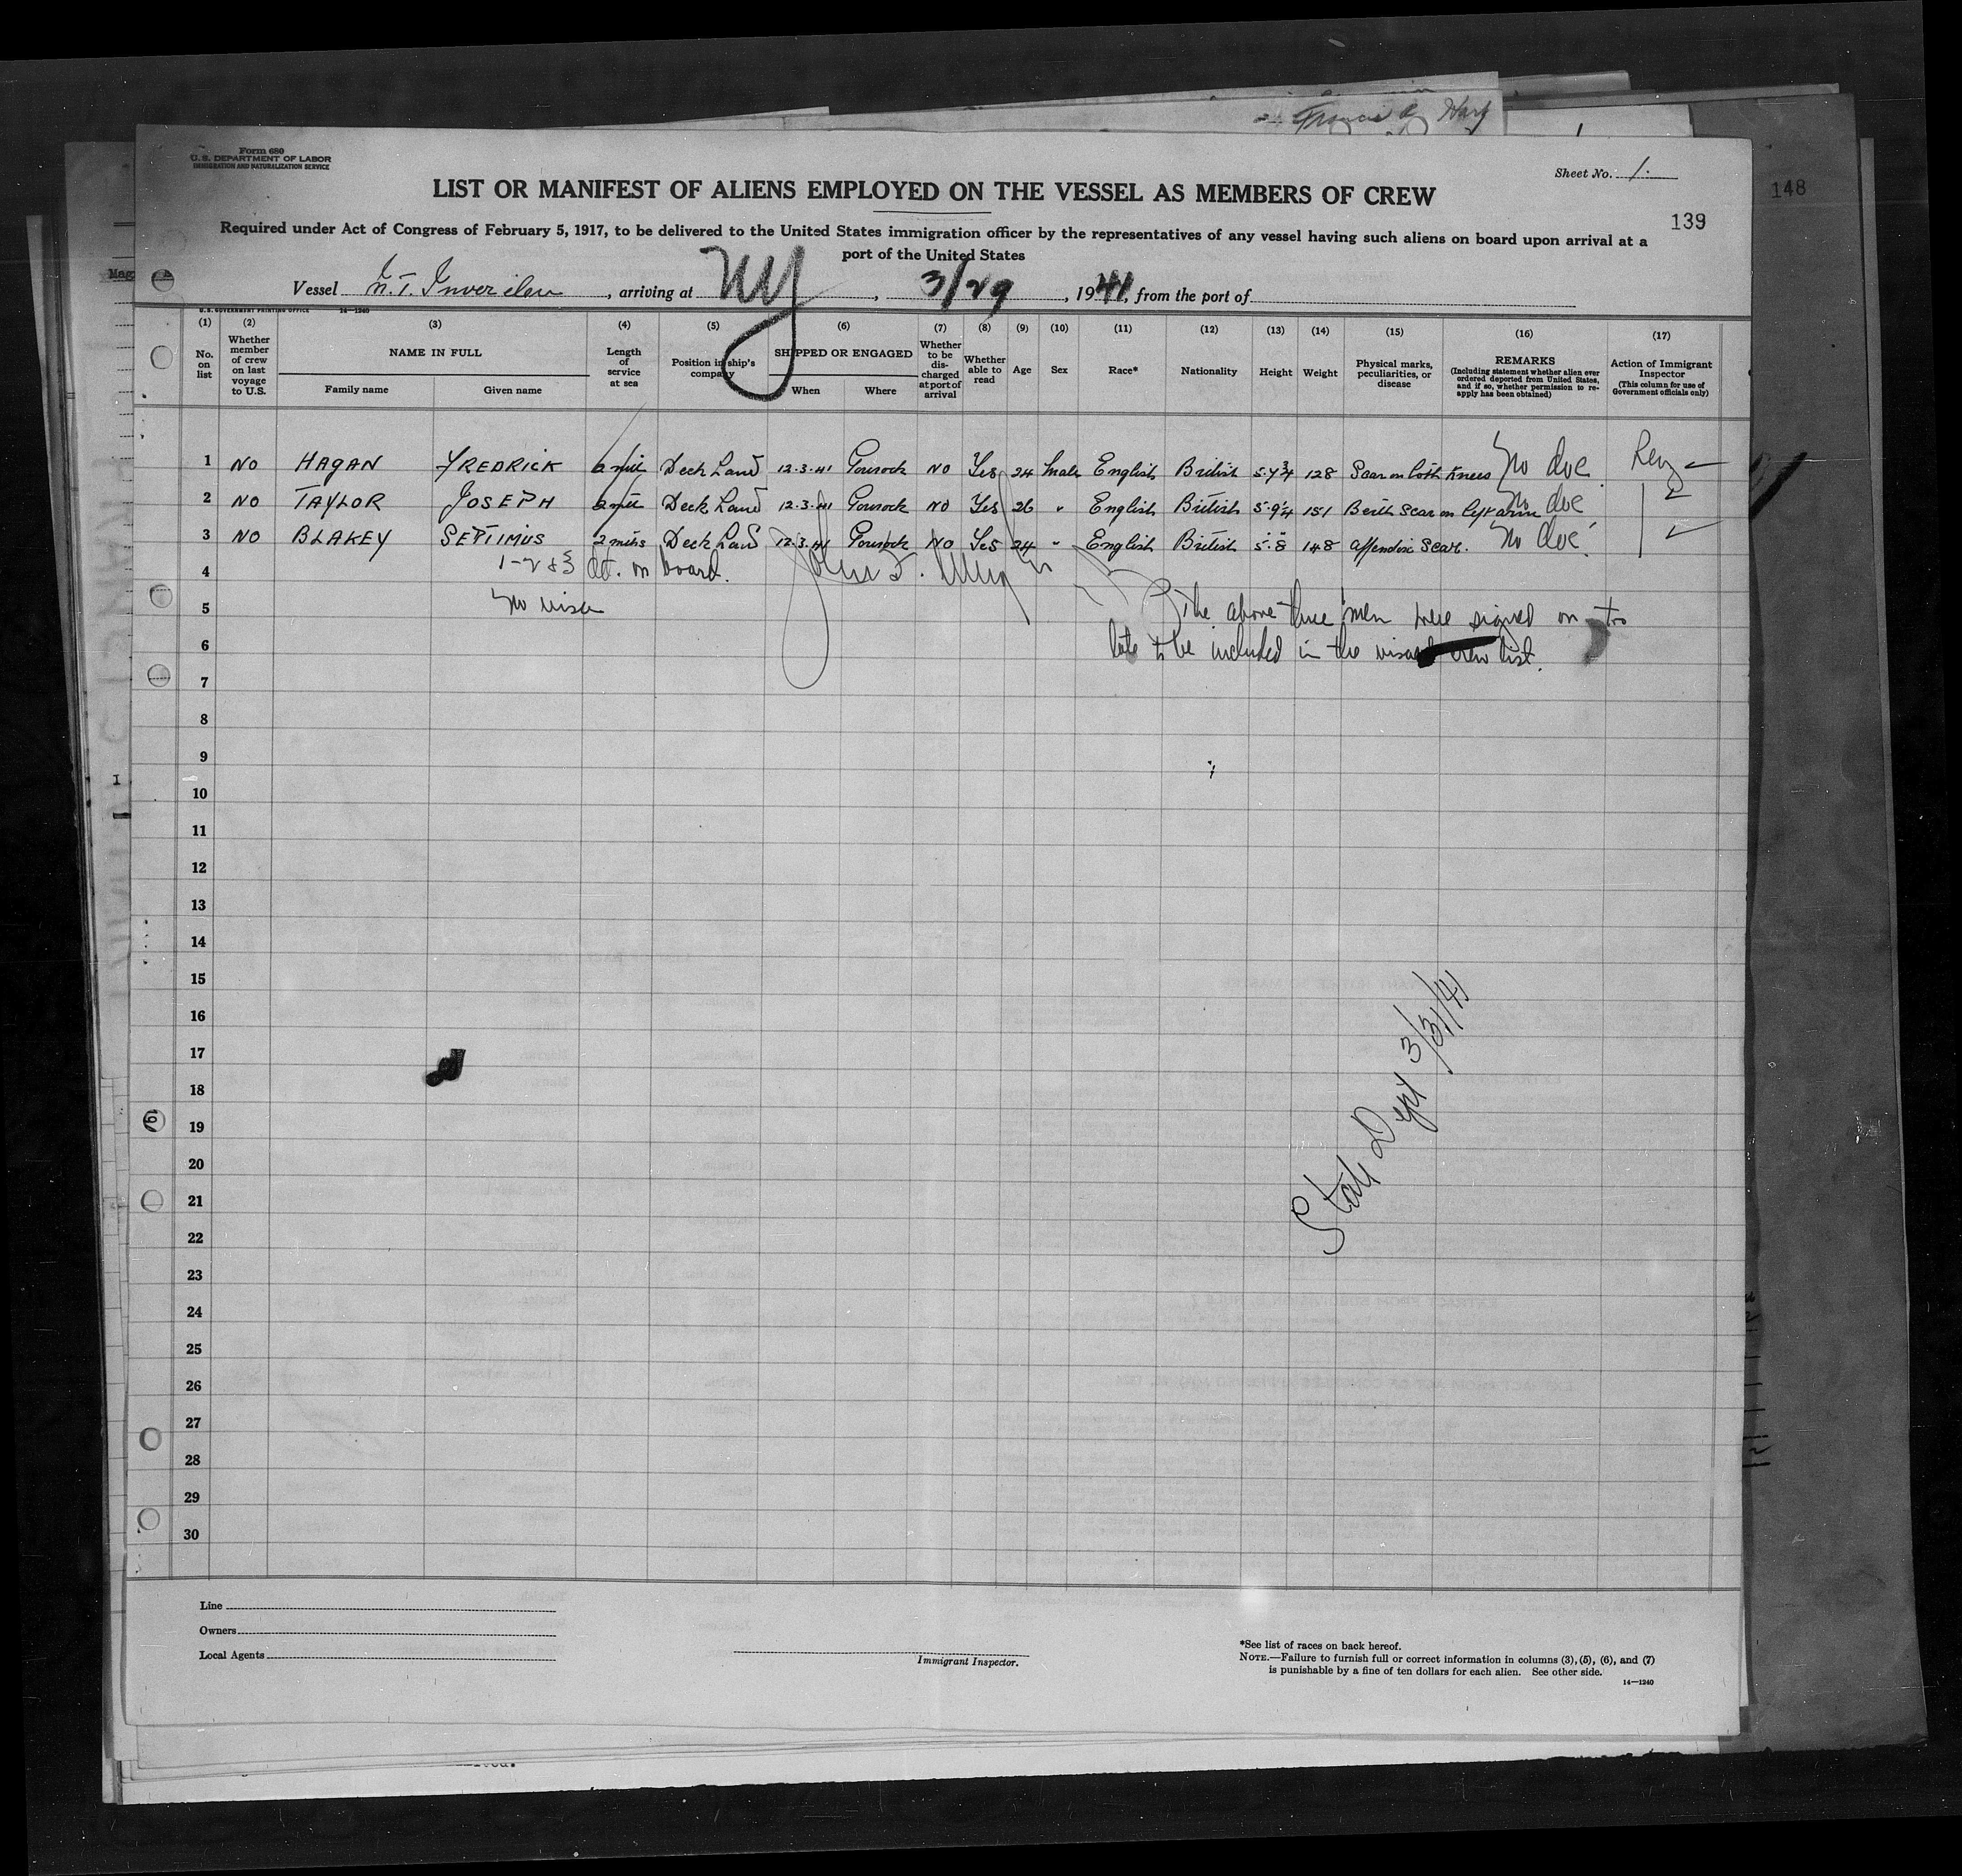 Francis
148
Form 680
U. S. DEPARTMENT OF LABOR
IMMIGRATION AND NATURALIZATION SERVICE
Sheet No. 1.
LIST OR MANIFEST OF ALIENS EMPLOYED ON THE VESSEL AS MEMBERS OF CREW
139
Required under Act of Congress of February 5, 1917, to be delivered to the United States immigration officer by the representatives of any vessel having such aliens on board upon arrival at a
port of the United States
Vessel , arriving at NY , 3/29 , 1941, from the port of
U. S. GOVERNMENT PRINTING OFFICE 14—1240
(1) (2) (3) (4) (5) (6) (7) (8) (9) (10) (11) (12) (13) (14) (15) (16) (17)
No. on list
Whether member of crew on last voyage to U.S.
NAME IN FULL
Family name Given name
Length of service at sea
Position in ship's company
SHIPPED OR ENGAGED
When Where
Whether to be discharged at port of arrival
Whether able to read
Age
Sex
Race*
Nationality
Height
Weight
Physical marks, peculiarities, or disease
REMARKS
(Including statement whether alien ever ordered deported from United States, and if so, whether permission to re-apply has been obtained)
Action of Immigrant Inspector
(This column for use of Government officials only)
1 NO HAGAN FREDRICK Deck Land 12.3.41 Gourock NO Yes 24 Male English British 5.7¾ 128 Scar on both knees No doc
2 NO TAYLOR JOSEPH Deck Land 12.3.41 Gourock NO Yes 26 " English British 5.9¼ 151 Scar on left arm No doc
3 NO BLAKEY SEPTIMUS 2 mths Deck Land 12.3.41 Gourock NO Yes 24 " English British 5.8 148 Appendix Scar. No doc.
4 1-2 & 3 on board.
5 No visa The above three men were signed on too
6 late to be included in the visaed crew list.
7
8
9
10
11
12
13
14
15
16
17
18
19
20
21
22
23
24
25
26
27
28
29
30
State Dept 3/31/41
Line
Owners
Local Agents
Immigrant Inspector.
*See list of races on back hereof.
NOTE.—Failure to furnish full or correct information in columns (3), (5), (6), and (7)
is punishable by a fine of ten dollars for each alien. See other side.
14—1240